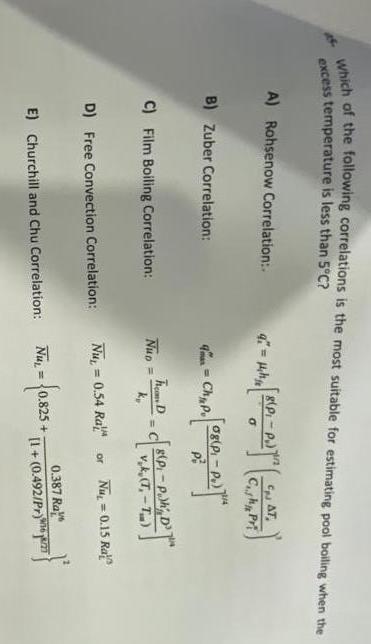 Which of the following correlations is the most suitable for estimating pool boiling when the
excess temperature is less than 5°C?
A) Rohsenow Correlation:. q″ₛ = μₗh_fg [g(ρₗ − ρᵥ)/σ]^1/2 (c_p,l ΔTₑ / C_s,f h_fg Prⁿₗ)³
B) Zuber Correlation: q″max = Ch_fg ρᵥ [σg(ρₗ − ρᵥ)/ρ²ᵥ]^1/4
C) Film Boiling Correlation: Nu_D = h_conv D/kᵥ = C [g(ρₗ − ρᵥ)h′_fg D³ / νᵥkᵥ(Tₛ − T_sat)]^1/4
D) Free Convection Correlation: Nu_L = 0.54 Ra_L^1/4 or Nu_L = 0.15 Ra_L^1/3
E) Churchill and Chu Correlation: Nu_L = {0.825 + 0.387 Ra_L^1/6 / [1 + (0.492/Pr)^9/16]^8/27}²